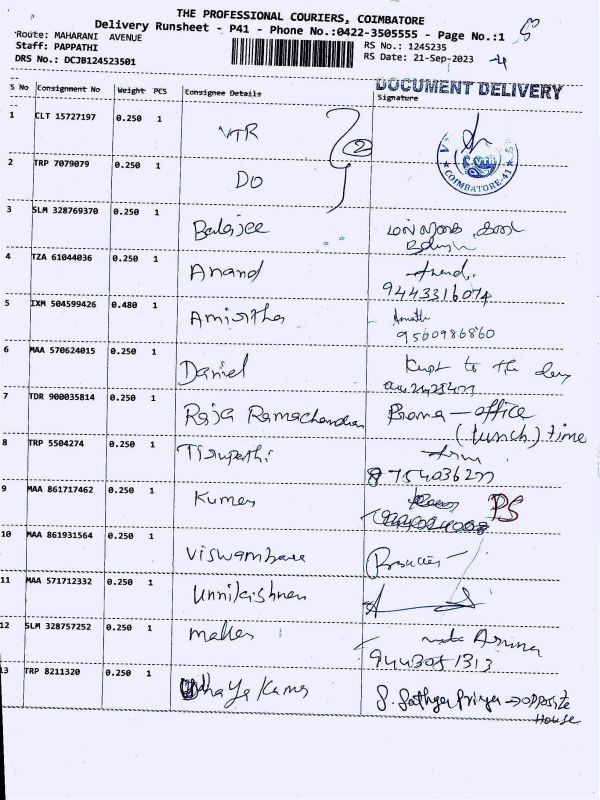 THE PROFESSIONAL COURIERS, COIMBATORE
Delivery Runsheet - P41 - Phone No.:0422-3505555 - Page No.:1
Route: MAHARANI AVENUE
RS No.: 1245235
Staff: PAPPATHI
RS Date: 21-Sep-2023
DRS No.: DCJB124523501
DOCUMENT DELIVERY
S No Consignment No Weight PCS Consignee Details Signature
1 CLT 15727197 0.250 1 VTR 2
VTR
COIMBATORE-41
2 TRP 7079079 0.250 1 DO
3 SLM 328769370 0.250 1 Balajee
4 TZA 61044036 0.250 1 Anand
9443316074
5 IXM 504599426 0.480 1 Amirtha
9500986860
6 MAA 570624015 0.250 1 Daniel
7 TDR 900035814 0.250 1 Raja Ramachandran Prema - office
(Lunch) time
8 TRP 5504274 0.250 1 Tirupathi
8754036277
9 MAA 861717462 0.250 1 Kumar PS
10 MAA 861931564 0.250 1 Viswambara
11 MAA 571712332 0.250 1 Unnikrishnan
12 SLM 328757252 0.250 1 Aruna
9443051313
13 TRP 8211320 0.250 1 UdhayaKumar S. Sathyapriya → opposite
House